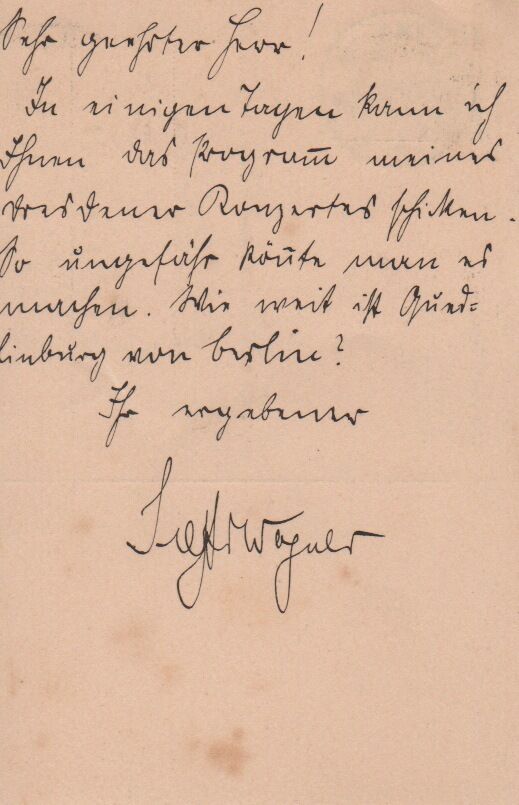 Sehr geehrter Herr!
In einigen Tagen kann ich
Ihnen das Program̅ meines
Dresdener Konzertes schicken.
So ungefähr kön̅te man es
machen. Wie weit ist Qued=
linburg von Berlin?
Ihr ergebener
Siegfr Wagner